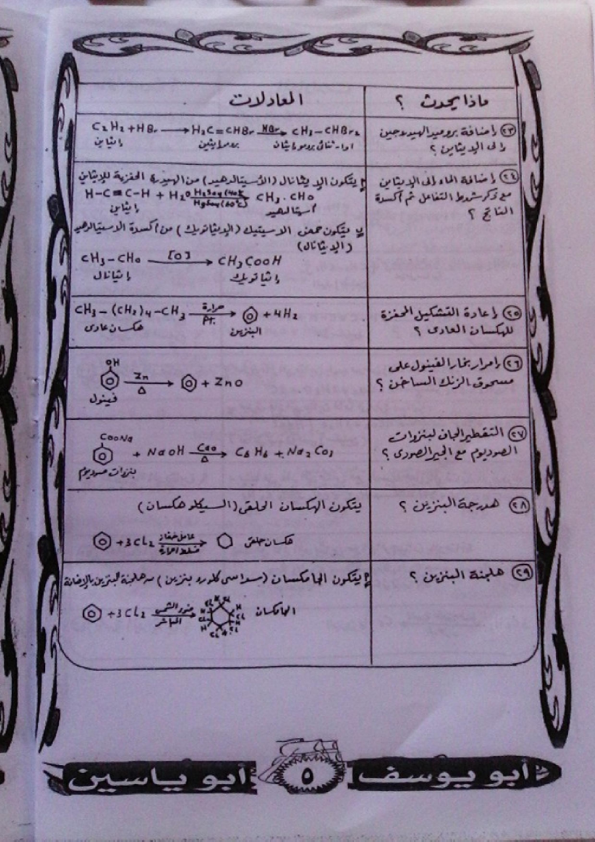 ماذا يحدث ؟
المعادلات
٢٣) إضافة بروميد الهيدروجين
إلى الإيثاين ؟
C₂H₂ + HBr ⟶ H₂C = CHBr —HBr⟶ CH₃ – CHBr₂
إيثاين بروموإيثين ١،١ - ثنائى بروموإيثان
٢٤) إضافة الماء إلى الإيثاين
مع ذكر شروط التفاعل ثم أكسدة
الناتج ؟
يتكون الإيثانال (الأسيتالدهيد) من الهيدرة الحفزية للإيثاين
H–C≡C–H + H₂O CH₃ . CHO
إيثاين أسيتالدهيد
يتكون حمض الاسيتيك (الإيثانويك) من أكسدة الاسيتالدهيد
(الإيثانال)
CH₃ – CHO —[O]⟶ CH₃COOH
إيثانال إيثانويك
٢٥) إعادة التشكيل المحفزة
للهكسان العادى ؟
CH₃ – (CH₂)₄ – CH₃ —حرارة / Pt.⟶ + 4H₂
هكسان عادى البنزين
٢٦) إمرار بخار الفينول على
مسحوق الزنك الساخن ؟
OH
—Zn / Δ⟶ + ZnO
فينول
٢٧) التقطير الجاف لبنزوات
الصوديوم مع الجير الصودى ؟
COONa
+ NaOH —CaO / Δ⟶ C₆H₆ + Na₂CO₃
بنزوات صوديوم
٢٨) هدرجة البنزين ؟
يتكون الهكسان الحلقى (السيكلو هكسان)
+ 3Cl₂ —عامل حفاز / ضغط/حرارة⟶ هكسان حلقى
٢٩) هلجنة البنزين ؟
يتكون الجامكسان (سداسى كلورو بنزين) من هلجنة البنزين بالإضافة
+ 3Cl₂ —ضوء الشمس / المباشر⟶ الجامكسان
أبو يوسف ٥ أبو ياسين